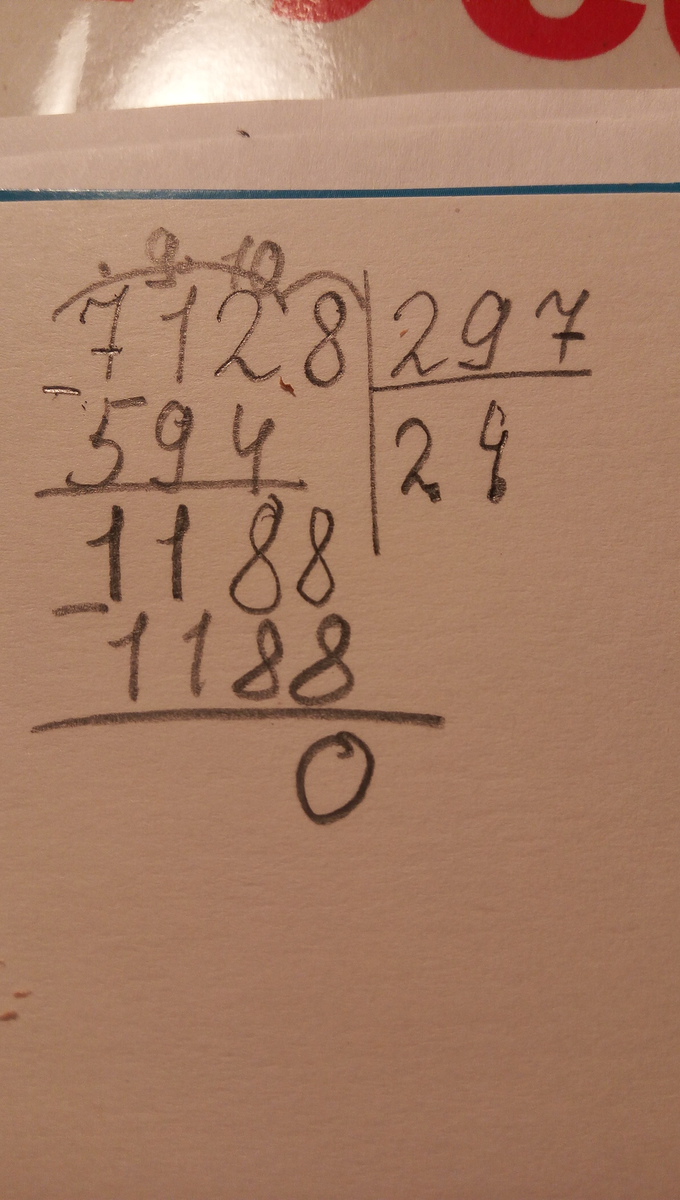 9 10
7128 297
- 594 24
1188
- 1188
0